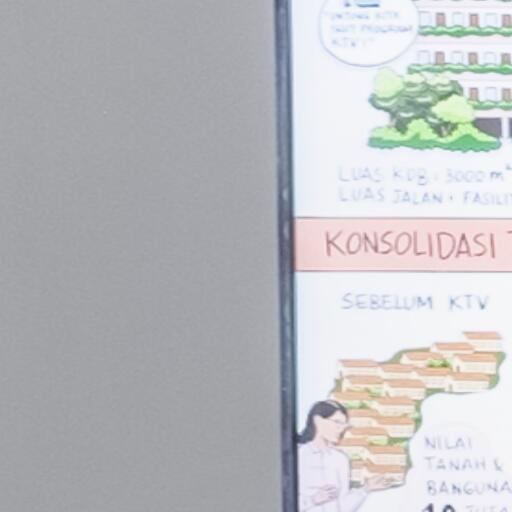 "UNTUNG KITA
IKUT PROGRAM
KTV!"
LUAS KDB : 3000 m²
LUAS JALAN + FASILIT
KONSOLIDASI T
SEBELUM KTV
NILAI
TANAH &
BANGUNA
10 JUTA